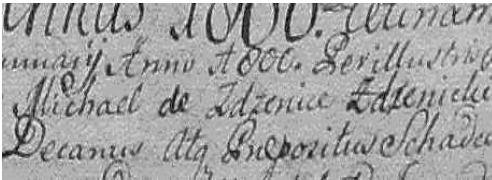 1800. Utinam
nuarij Anno 1800. Perillustris
Michael de Zdzenice Zdzenicki
Decanus Atq Præpositus Schadec